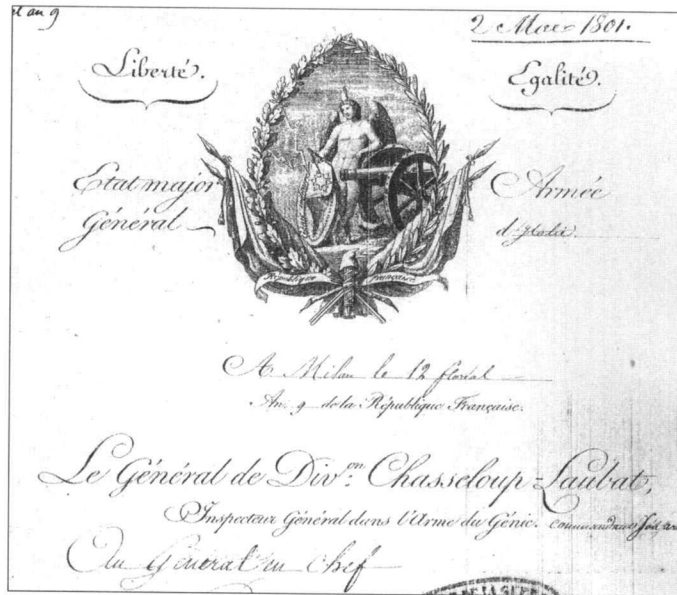 et an 9
2 Mai 1801.
Liberté.
Egalité.
Etat major
Général
Armée
d'Italie.
République française
A Milan le 12 floréal
An 9 de la République Française.
Le Général de Div.on Chasseloup-Laubat,
Inspecteur Général dans l'Arme du Génie. commandant
Au Général en chef
DE LA GUERRE